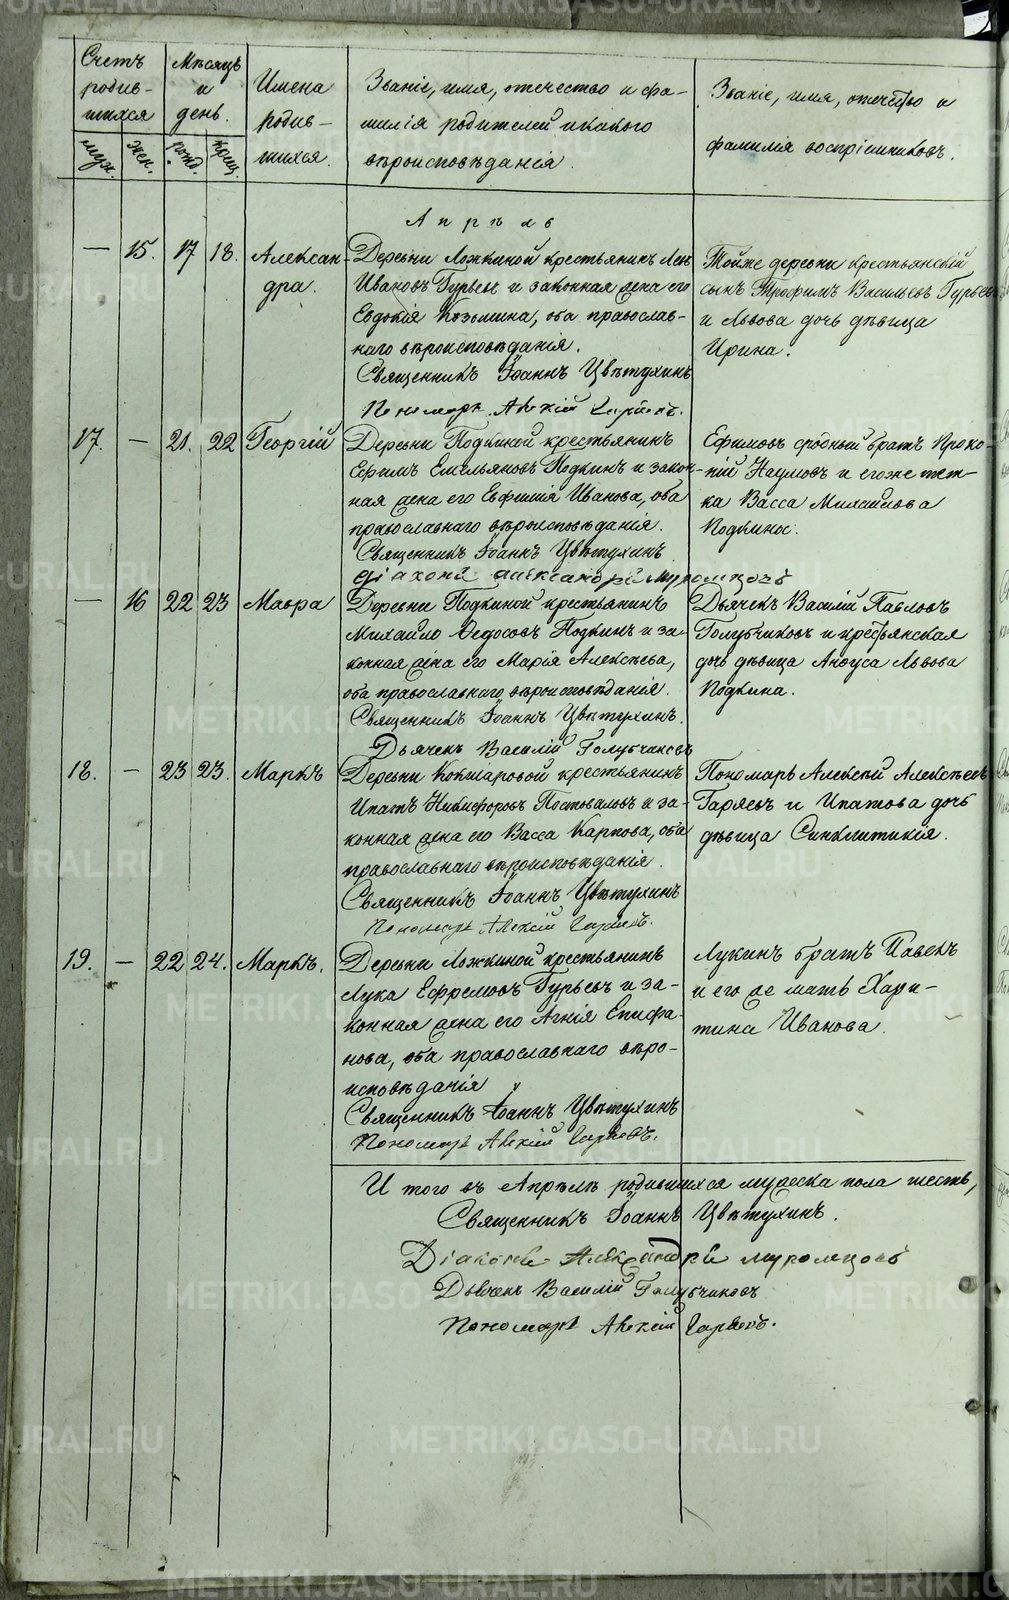 Счетъ родив-
шихся
муж. жен.
Мѣсяцъ
и
день.
рожд. крещ.
Имена
родив-
шихся.
Званіе, имя, отечество и фа-
милія родителей и какого
вѣроисповѣданія.
Званіе, имя, отечество и
фамилія воспріемниковъ.
Апрѣль
— 15. 17 18. Алексан-
дра.
Деревни Ложкиной крестьянинъ Левъ
Ивановъ Гурьевъ и законная жена его
Евдокія Козьмина, оба православ-
наго вѣроисповѣданія.
Священникъ Іоаннъ Цвѣтухинъ
Пономарь Алексій Гаряевъ.
Тойже деревни крестьянскій
сынъ Трофимъ Васильевъ Гурьевъ
и Львова дочь дѣвица
Ирина.
17. — 21. 22 Георгій
Деревни Подкиной крестьянинъ
Ефимъ Емельяновъ Подкинъ и закон-
ная жена его Евфимія Иванова, оба
православнаго вѣроисповѣданія.
Священникъ Іоаннъ Цвѣтухинъ
Діаконъ Александръ Муромцовъ
Ефимовъ сродный братъ Проко-
пій Наумовъ и егоже тет-
ка Васса Михайлова
Подкины.
— 16 22 23 Мавра
Деревни Подкиной крестьянинъ
Михайло Федосовъ Подкинъ и за-
конная жена его Марія Алексѣева,
оба православнаго вѣроисповѣданія.
Священникъ Іоаннъ Цвѣтухинъ.
Дьячекъ Василій Голубчиковъ
Дьячекъ Василій Павловъ
Голубчиковъ и крестьянская
дочь дѣвица Анфуса Львова
Подкина.
18. — 23 23. Маркъ
Деревни Кокшаровой крестьянинъ
Ипатъ Никифоровъ Постоваловъ и за-
конная жена его Васса Карпова, оба
православнаго вѣроисповѣданія.
Священникъ Іоаннъ Цвѣтухинъ
Пономарь Алексій Гаряевъ.
Пономарь Алексѣй Алексѣевъ
Гаряевъ и Ипатова дочь
дѣвица Синклитикія.
19. — 22 24. Маркъ.
Деревни Ложкиной крестьянинъ
Лука Ефремовъ Гурьевъ и за-
конная жена его Агнія Епифа-
нова, оба православнаго вѣро-
исповѣданія
Священникъ Іоаннъ Цвѣтухинъ
Пономарь Алексій Гаряевъ.
Лукинъ братъ Павелъ
и его же мать Хари-
тина Иванова.
И того въ Апрѣлѣ родившихся мужеска пола шесть,
Священникъ Іоаннъ Цвѣтухинъ.
Діаконъ Александръ Муромцовъ
Дьячекъ Василій Голубчиковъ
Пономарь Алексій Гаряевъ.